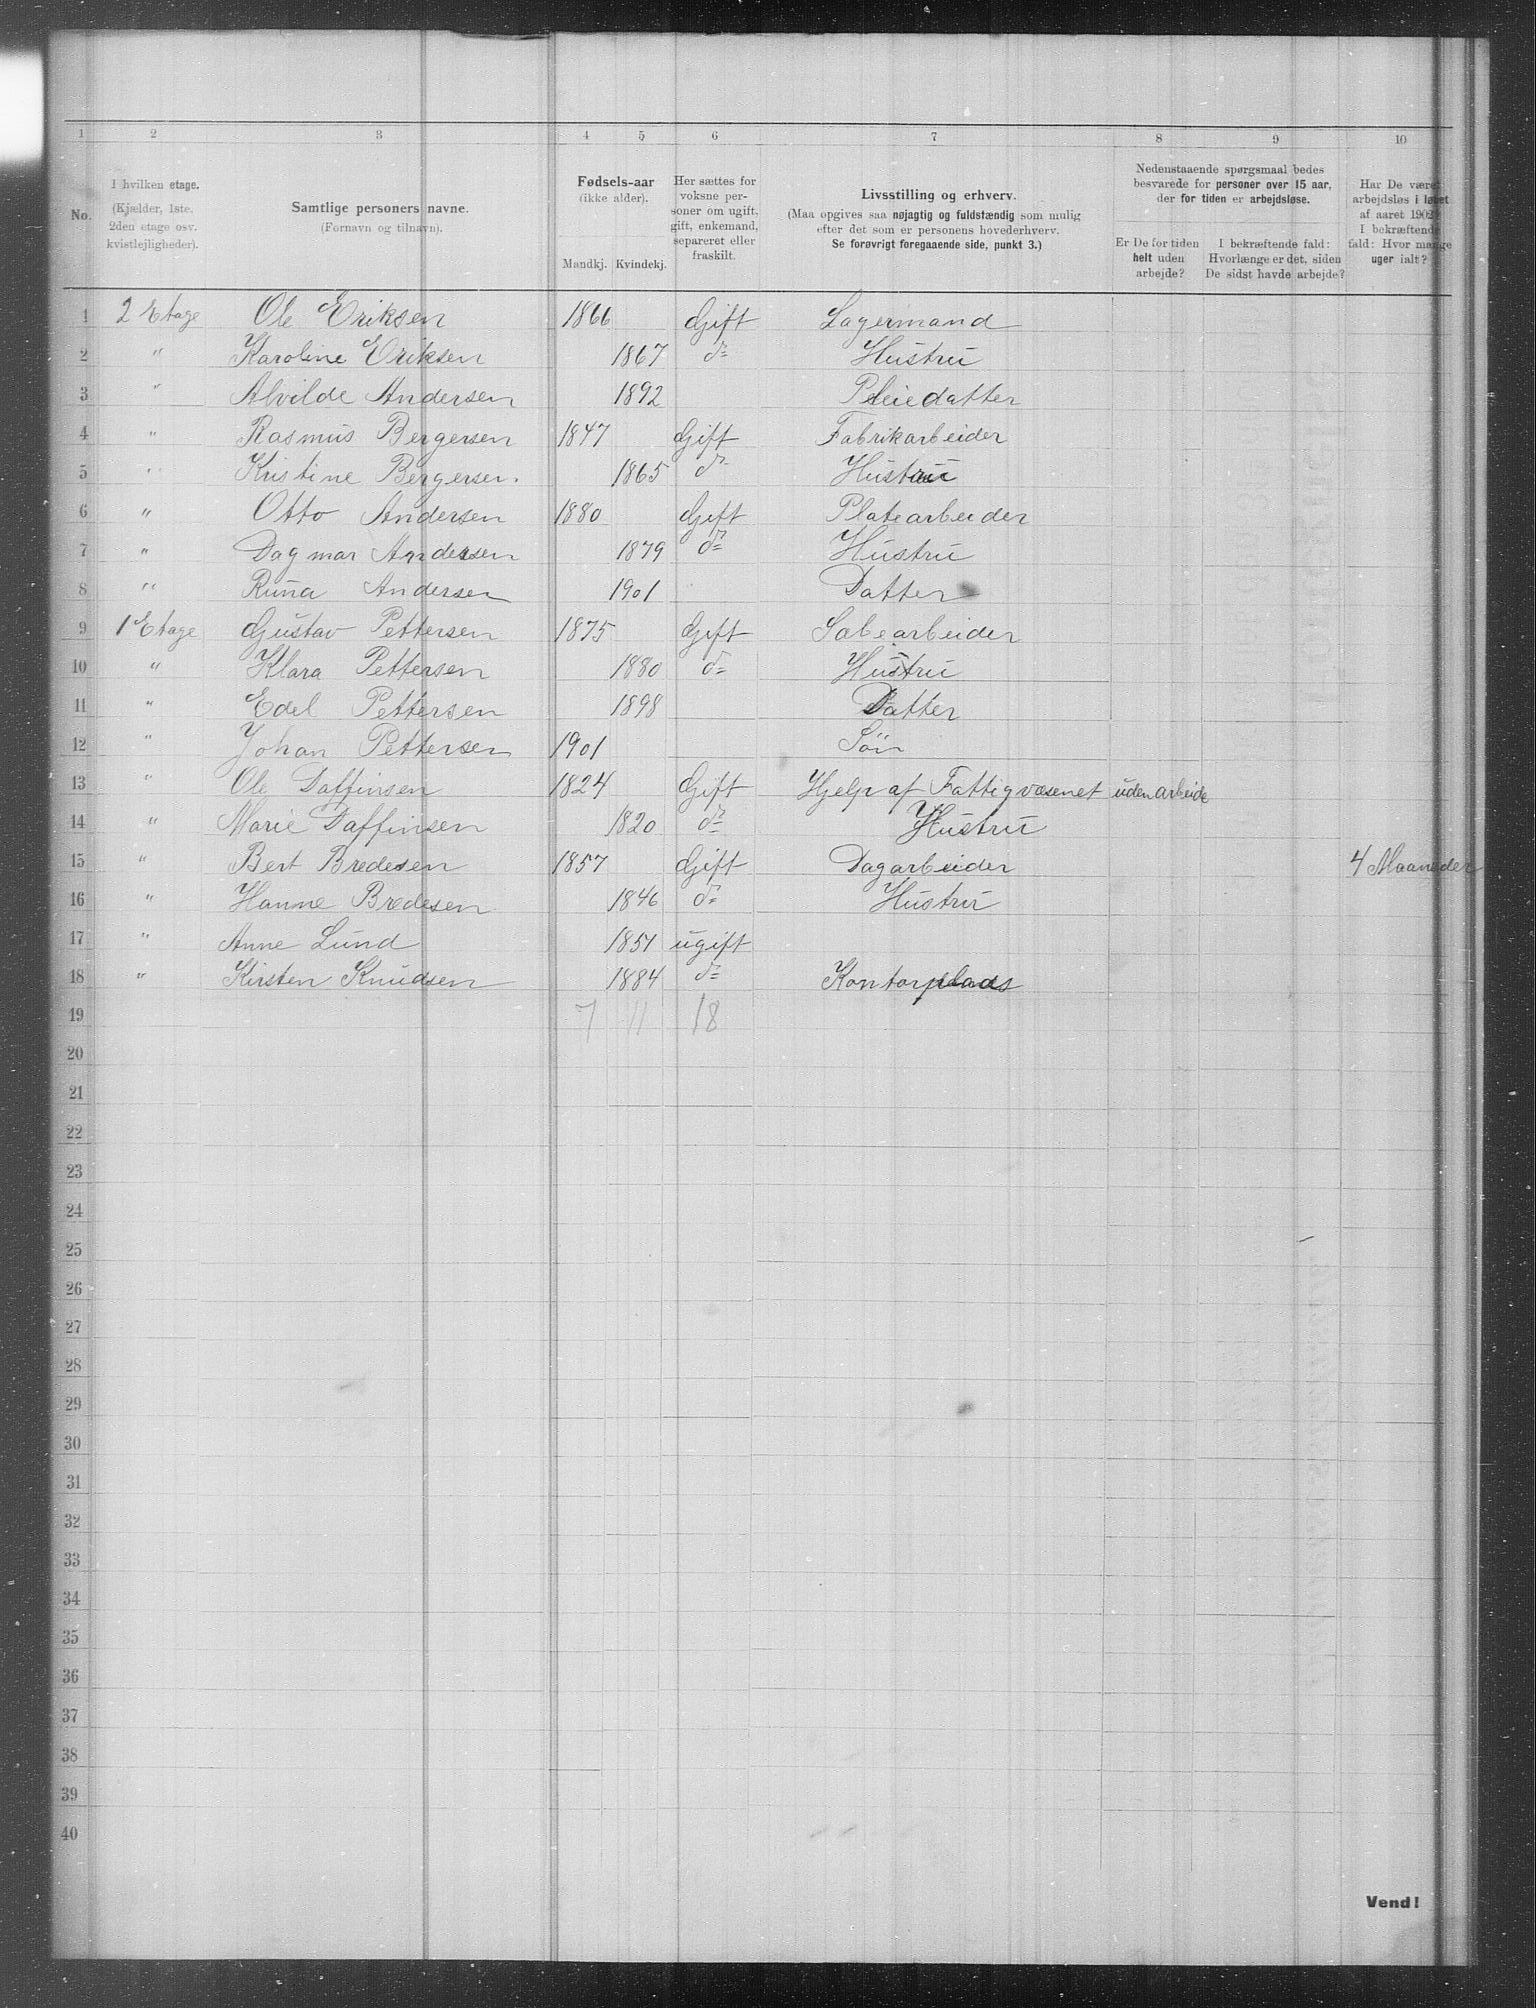 1 2 3 4 5 6 7 8 9 10
No.
I hvilken etage.
(Kjælder, 1ste.
2den etage osv.
kvistlejligheder).
Samtlige personers navne.
(Fornavn og tilnavn).
Fødsels-aar
(ikke alder).
Mandkj. Kvindekj.
Her sættes for
voksne per-
soner om ugift,
gift, enkemand,
separeret eller
fraskilt.
Livsstilling og erhverv.
(Maa opgives saa nøjagtig og fuldstændig som mulig
efter det som er personens hovederhverv.
Se forøvrigt foregaaende side, punkt 3.)
Nedenstaaende spørgsmaal bedes
besvarede for personer over 15 aar,
der for tiden er arbejdsløse.
Er De for tiden
helt uden
arbejde?
I bekræftende fald:
Hvorlænge er det, siden
De sidst havde arbejde?
Har De været
arbejdsløs i løbet
af aaret 1902?
I bekræftende
fald: Hvor mange
uger ialt?
1 2 Etage Ole Eriksen 1866 Gift Lagermand
2 " Karoline Eriksen 1867 do Hustru
3 " Alvilde Andersen 1892 Pleiedatter
4 " Rasmus Bergersen 1847 Gift Fabrikarbeider
5 " Kristine Bergersen. 1865 do Hustru
6 " Otto Andersen 1880 Gift Platearbeider
7 " Dagmar Andersen 1879 do Hustru
8 " Runa Andersen 1901 Datter
9 1 Etage Gustav Pettersen 1875 Gift Sæbearbeider
10 " Klara Pettersen 1880 do Hustru
11 " Edel Pettersen 1898 Datter
12 " Johan Pettersen 1901 Søn
13 " Ole Daffinsen 1824 Gift Hjelp af Fattigvæsenet uden arbeide
14 " Marie Daffinsen 1820 do Hustru
15 " Bert Bredesen 1857 Gift Dagarbeider 4 Maaneder
16 " Hanne Bredesen 1846 do Hustru
17 " Anne Lund 1851 ugift
18 " Kirsten Knudsen 1884 do Kontorplads
19 7 11 18
20
21
22
23
24
25
26
27
28
29
30
31
32
33
34
35
36
37
38
39
40
Vend!